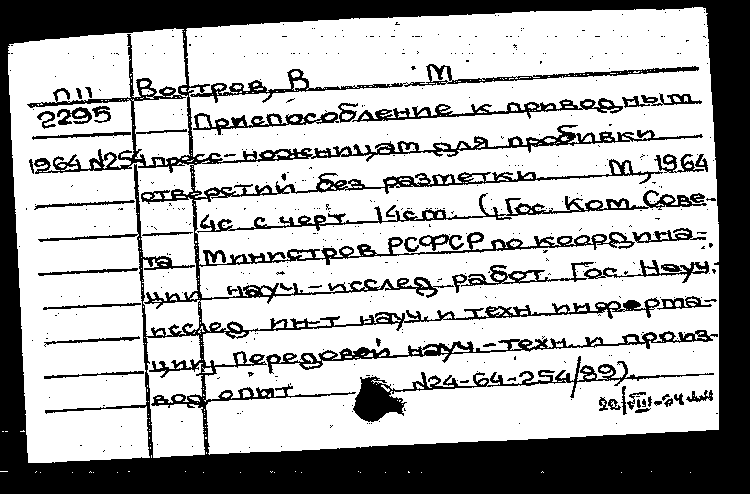 П11 Востров, В М
2295 Приспособление к приводным
1964 N254 пресс-ножницам для пробивки
отверстий без разметки М, 1964
4с с черт. 14см. (Гос. Ком. Сове-
та Министров РСФСР по координа-
ции науч.-исслед. работ. Гос. Науч.
исслед. ин-т науч. и техн. информа-
ции Передовой науч.-техн. и произ-
вод опыт N24-64-254/89).